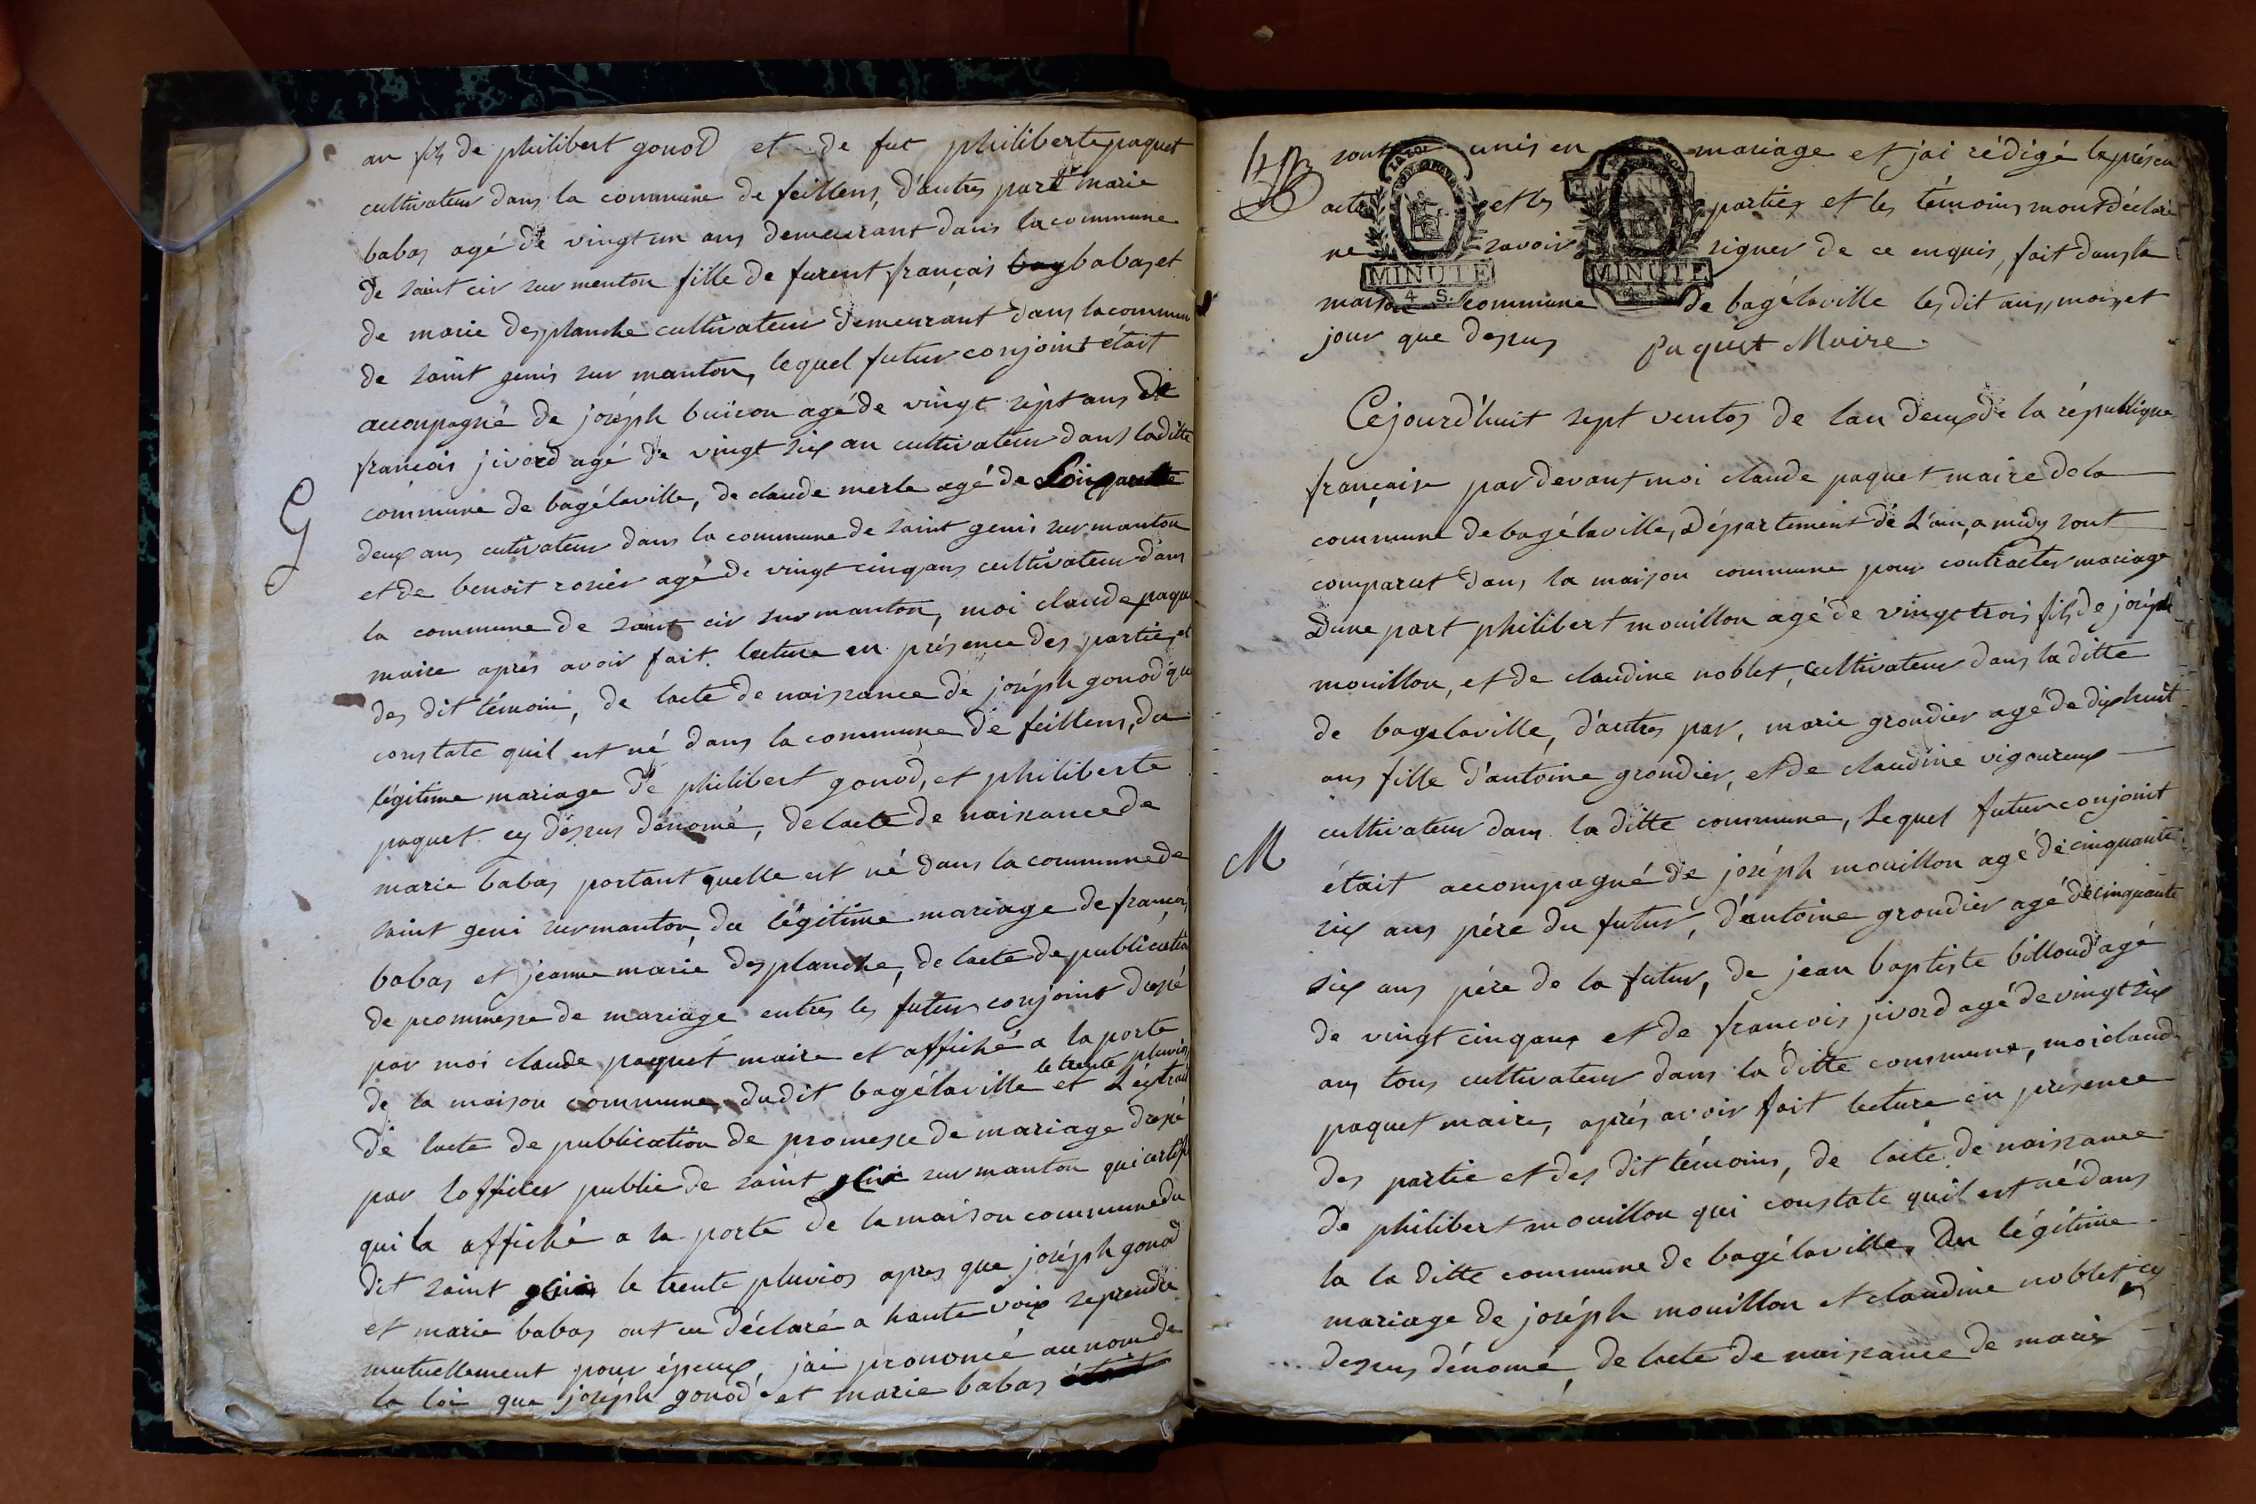 an fils de philibert gonod et de fut philiberte paquet
cultivateur dans la commune de feillens, d'autres part marie
babas agé de vingt un ans demeurant dans la commune
de saint cir sur menton fille de furent françois bag babas et
de marie desplanche cultivateur demeurant dans la commun
de saint genis sur manton, lequel futur conjoint était
acconpagné de joséph buicon agé de vingt sept ans de
francois jivord agé de vingt six an cultivateur dans la ditte
commune de bagélaville, de claude merle agé de cinquante
deux ans cutivateur dans la commune de saint genis sur manton
G
et de benoit rosier agé de vingt cinq ans cultivateur dans
la commune de saint cir sur manton, moi claude paque
maire aprés avoir fait lecture en présence des parties et
des dit témoin, de lacte de naissance de joséph gonod qu
constate quil est né dans la commune de feillens, du
légitime mariage de philibert gonod, et philiberte
paquet cy dessus dénomé, de lacte de naissance de
marie babas portant quelle est né dans la commune de
saint geni sur manton, du légitime mariage de françois
babas et jeanne marie desplanche, de lacte de publication
de prommesse de mariage entres les futur conjoint dressé
par moi claude paquet maire et affiché a la porte
de la maison commune dudit bagélaville le trente pluvios et Léxtrait
de lacte de publication de promesse de mariage dressé
par lofficier public de saint geni sur manton qui certifi
qui la affiché a la porte de la maison commune du
dit saint genis le trente pluvios apres que joséph gonod
et marie babas ont eu déclaré a haute voix se prendre
mutuellement pour époux, jai prononcé au nom de
la loi que joséph gonod et marie babas était
sont unis en mariage et jai rédigé le présen
acte et les parties et les témoins mont déclaré
ne savoir signer de ce enquis, fait dans la
LA LOI
MINUTE
4 S.
MINUTE
maison commune de bagélaville les dit ans, mois et
jour que dessus
Paquet Maire
Cejourd'huit sept ventos de lan deux de la république
française par devant moi claude paquet maire de la
commune de bagélaville, département de L'ain, a midy sont
comparut dans la maison commune pour contracter mariage
Dune part philibert mouillon agé de vingt trois fils de joséph
mouillon, et de claudine noblet, cultivateur dans la ditte
de bagelaville, d'autres par, marie grondier agé de dixhuit
ans fille d'antoine grondier, et de claudine vigoureux
cultivateur dans la ditte commune, Lequel futur conjoint
M
était accompagné de joséph mouillon agé de cinquante
six ans pére du futur, d'antoine grondier agé de cinquante
six ans pére de la futur, de jean baptiste billoud agé
de vingt cinq ans et de francois jivord agé de vingt six
ans tous cultivateur dans la ditte commune, moi claud
paquet maire, aprés avoir fait lecture en présence
des partie et des dit témoins, de lacte de naissance
de philibert mouillon qui constate quil est né dans
la la ditte commune de bagélaville, du légitime
mariage de joséph mouillon et claudine noblet cy
dessus dénomé, de lacte de naissance de marie